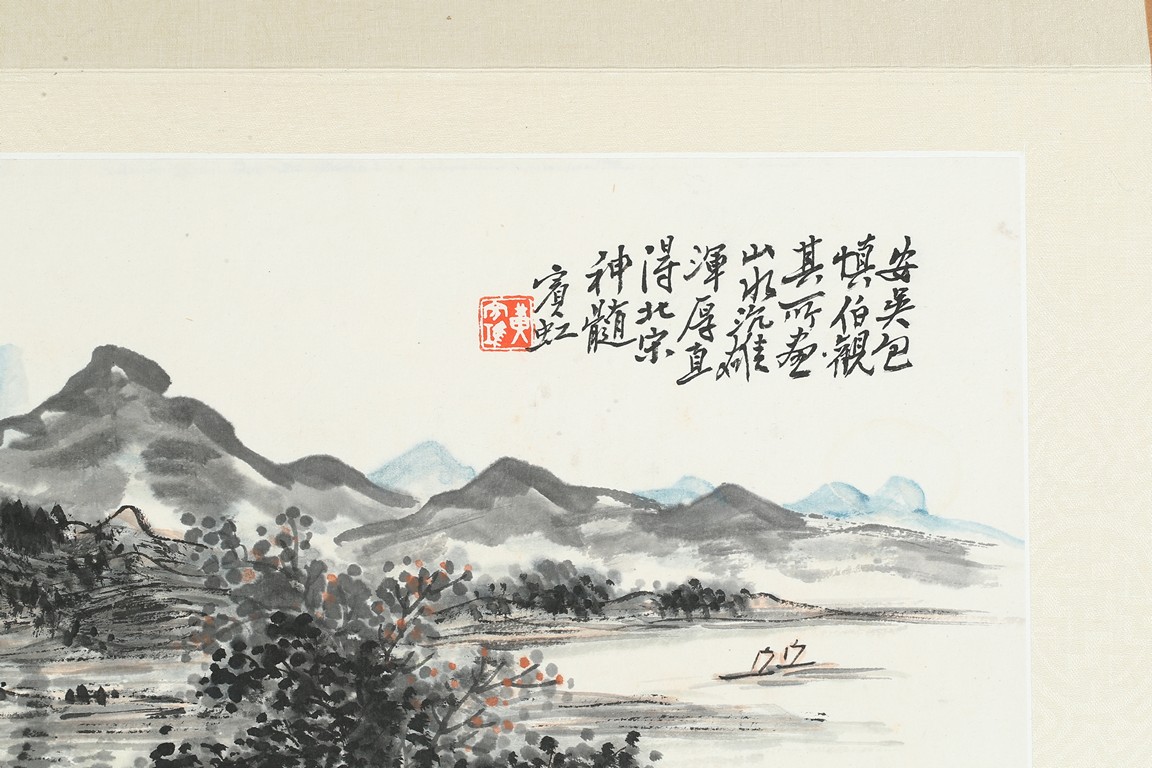 安吳包
慎伯觀
其所畫
山水沉雄
渾厚直
得北宋
神髓
賓虹
黄